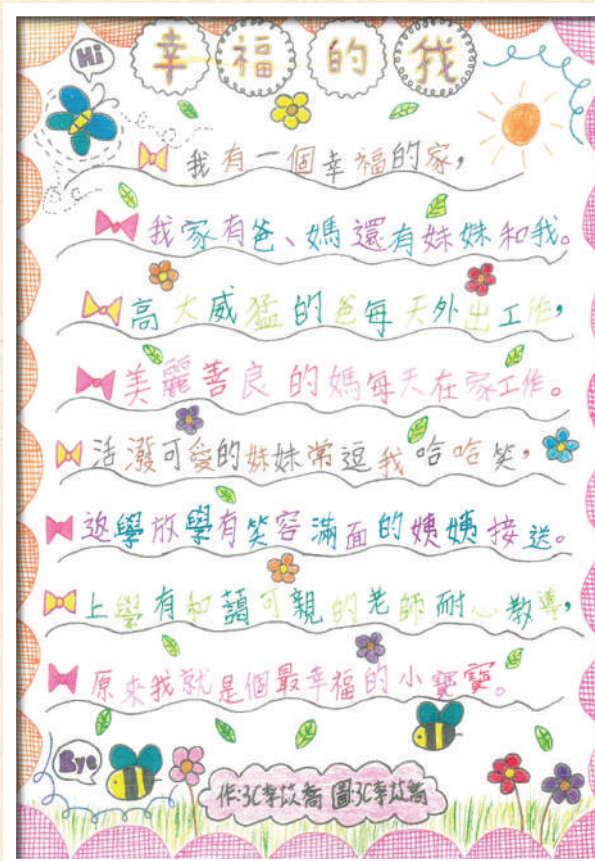 Hi
幸福的我
我有一個幸福的家，
我家有爸、媽還有妹妹和我。
高大威猛的爸每天外出工作，
美麗善良的媽每天在家工作。
活潑可愛的妹妹常逗我哈哈笑，
返學放學有笑容滿面的姨姨接送。
上學有和藹可親的老師耐心教導，
原來我就是個最幸福的小寶寶。
Bye
作:3C李 圖:3C李